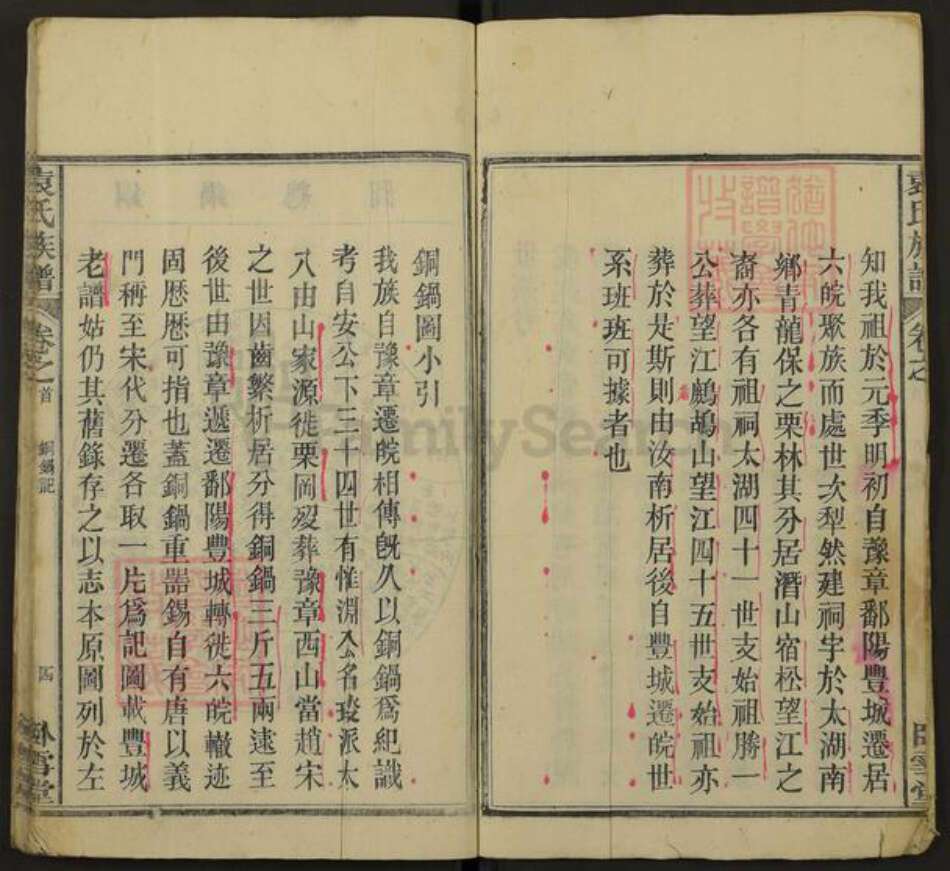 袁氏族譜
卷之
臥雪堂
知我祖於元季明初自豫章鄱陽豐城遷居
六皖聚族而處世次犁然建祠宇於太湖南
鄉青龍保之栗林其分居潛山宿松望江之
裔亦各有祖祠太湖四十一世支始祖勝一
公葬望江鷓鴣山望江四十五世支始祖亦
葬於是斯則由汝南析居後自豐城遷皖世
系班班可據者也
銅鍋圖小引
我族自豫章遷皖相傳旣久以銅鍋爲紀識
考自安公下三十四世有惟淵公名琰派太
八由山家源徙栗岡歿葬豫章西山當趙宋
之世因齒繁析居分得銅鍋三斤五兩逮至
後世由豫章遞遷鄱陽豐城轉徙六皖轍迹
固歷歷可指也蓋銅鍋重器錫自有唐以義
門稱至宋代分遷各取一片爲記圖載豐城
老譜姑仍其舊錄存之以志本原圖列於左
袁氏族譜
卷之首
銅鍋記
四
臥雪堂
FamilySearch